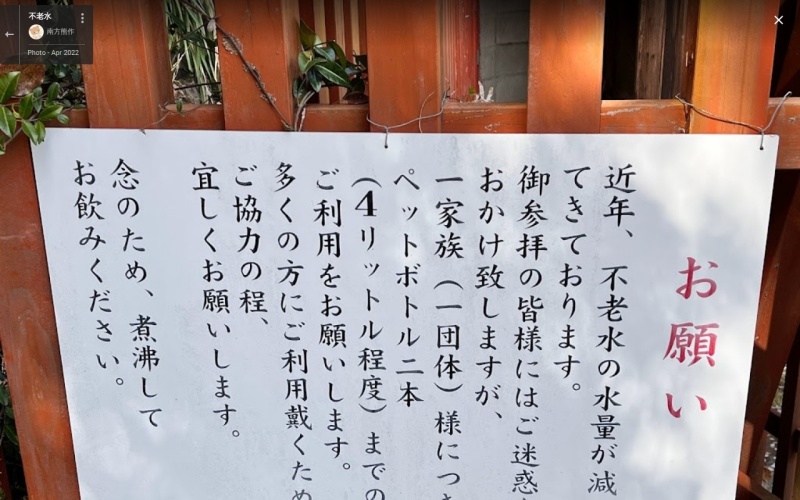 不老水
南方熊作
Photo - Apr 2022
お願い
近年、不老水の水量が減
てきております。
御参拝の皆様にはご迷惑
おかけ致しますが、
一家族(一団体)様につき
ペットボトル二本
(4リットル程度)までの
ご利用をお願いします。
多くの方にご利用戴くため
ご協力の程、
宜しくお願いします。
念のため、煮沸して
お飲みください。